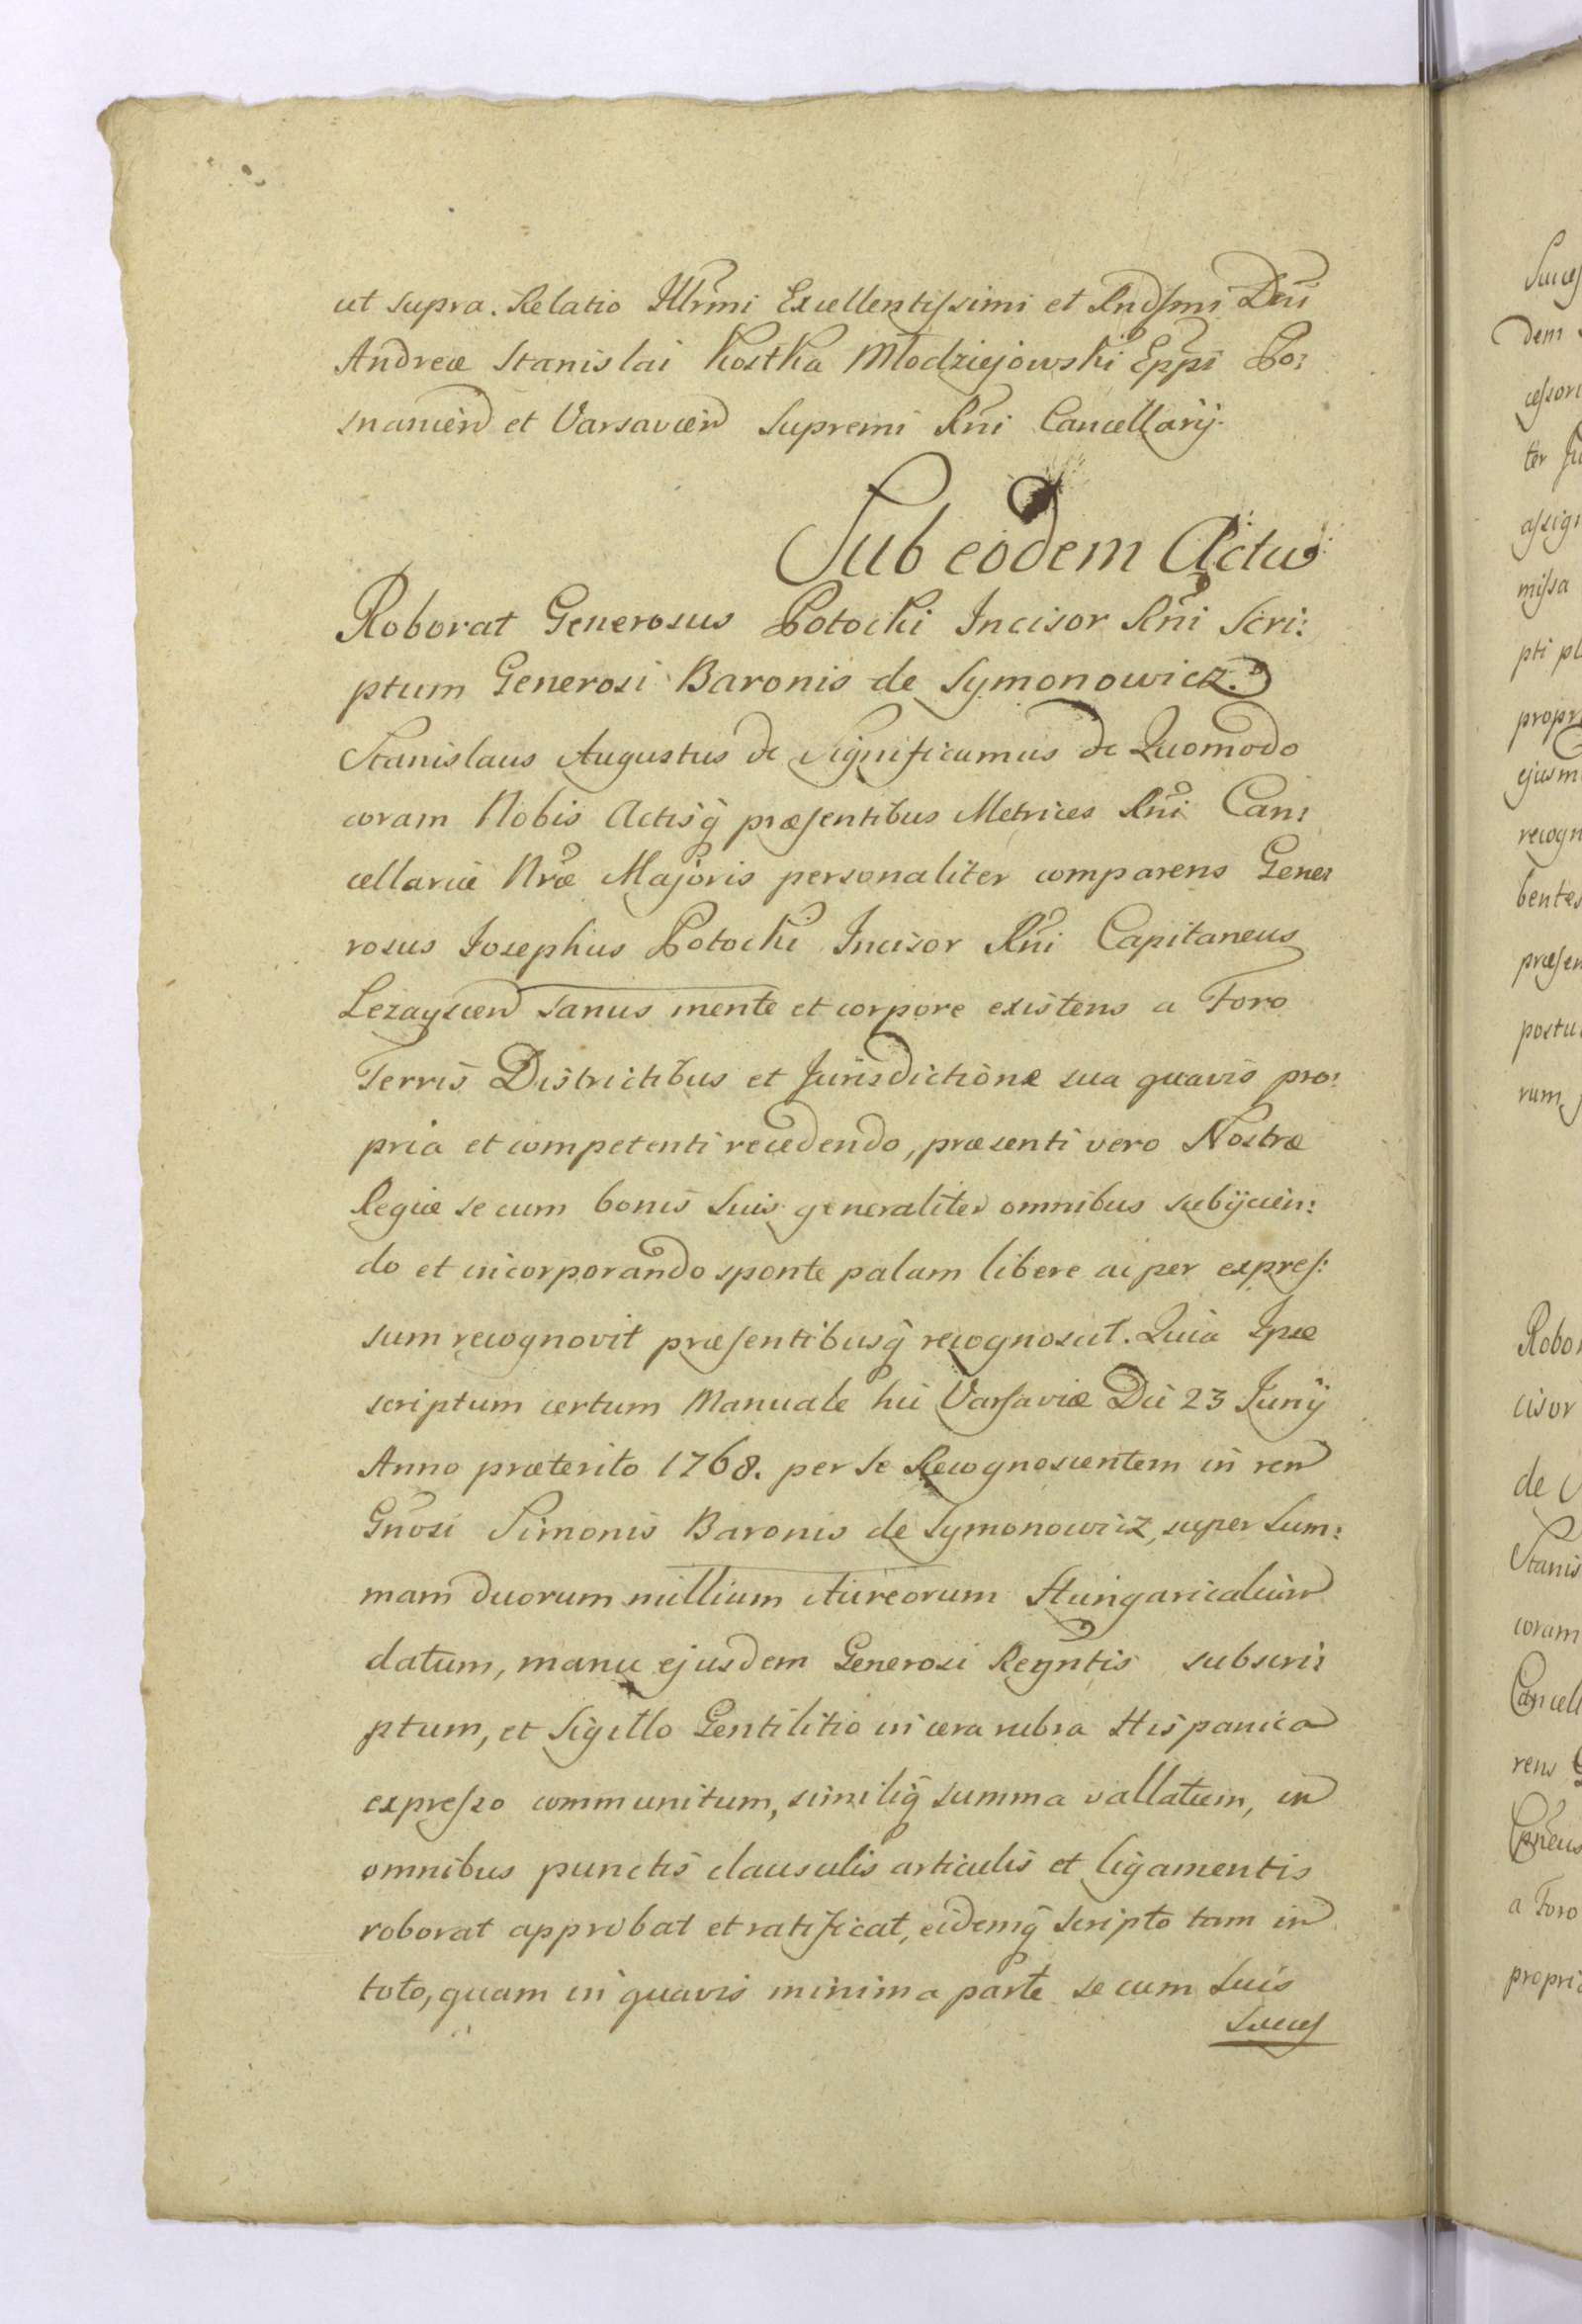 ut supra. Relatio Illrmi Excellentissimi et Rndsmi Dni
Andreæ Stanislai Kostka Młodziejowski Eppi Po:
snanien et Varsavien Supremi Rni Cancellarij.
Sub eodem Actu
Roborat Generosus Potocki Incisor Rni Scri:
ptum Generosi Baronis de Symonowicz.
Stanislaus Augustus &c Significamus &c Quomodo
coram Nobis Actisq præsentibus Metrices Rni Can:
cellariæ Nræ Majoris personaliter comparens Gene:
rosus Josephus Potocki Incisor Rni Capitaneus
Lezayscen sanus mente et corpore existens a Foro
Terris Districtibus et Jurisdictione sua quavis pro:
pria et competenti recedendo, præsenti vero Nostræ
Regiæ se cum bonis suis generaliter omnibus subijcien:
do et incorporando sponte palam libere ac per expres:
sum recognovit præsentibusq recognoscit. Quia Ipse
scriptum certum Manuale hic Varsaviæ Die 23 Junij
Anno præterito 1768. per se Recognoscentem in rem
Gnosi Simonis Baronis de Symonowicz, super Sum:
mam duorum millium Aureorum Hungaricalium
datum, manu ejusdem Generosi Regntis subscri:
ptum, et Sigillo Gentilitio in cera rubra Hispanica
expresso communitum, similiq summa vallatum, in
omnibus punctis clausulis articulis et ligamentis
roborat approbat et ratificat, eidemq scripto tam in
toto, quam in quavis minima parte se cum suis
Succes
Succes
dem
cessori
ter Ju
assign
missa
pti pl
propri
ejusm
recogn
bentes
præsen
postu
rum
Robor
cisor
de
Stanis
coram
Cancell
rens G
Cpneus
a Foro
propria